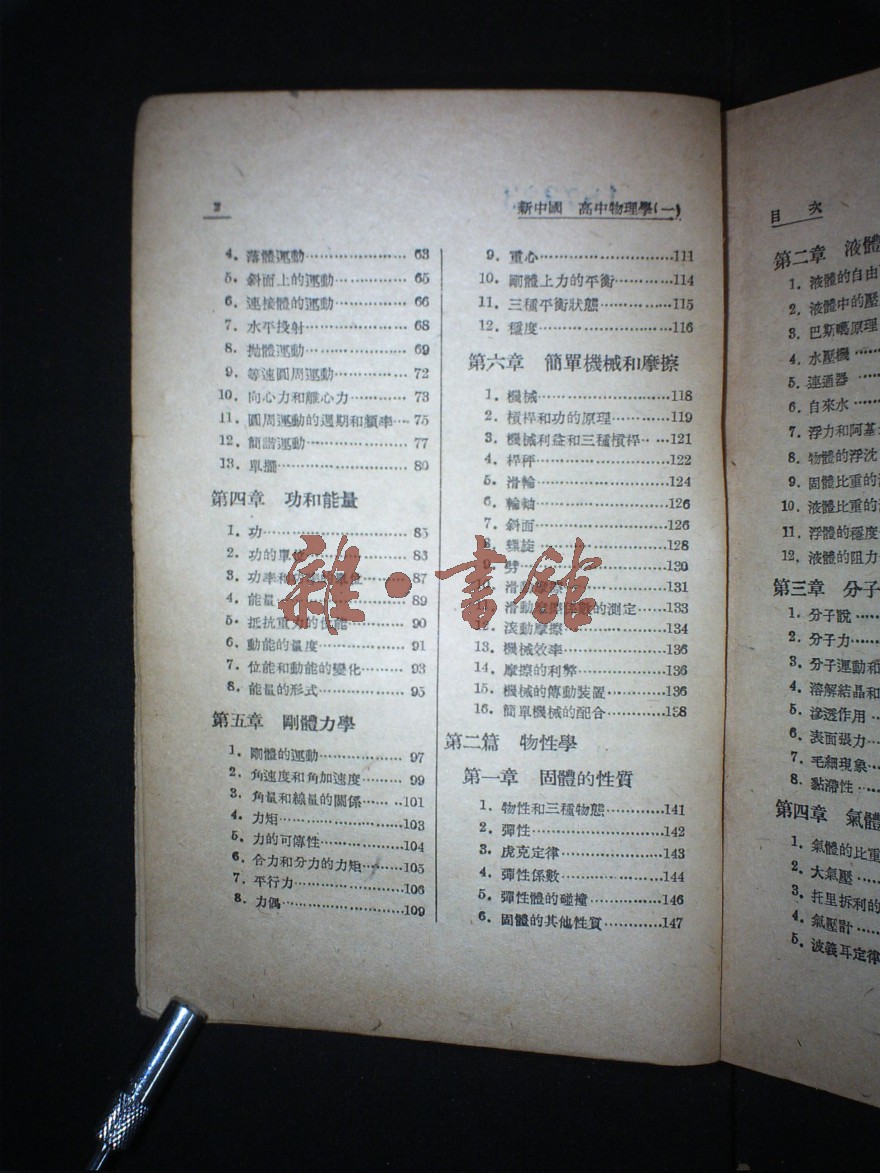 2
新中國　高中物理學(一)
4. 落體運動 63
5. 斜面上的運動 65
6. 連接體的運動 66
7. 水平投射 68
8. 拋體運動 69
9. 等速圓周運動 72
10. 向心力和離心力 73
11. 圓周運動的週期和頻率 75
12. 簡諧運動 77
13. 單擺 80
第四章　功和能量
1. 功 85
2. 功的單位 85
3. 功率和功率的單位 87
4. 能量 89
5. 抵抗重力的位能 90
6. 動能的量度 91
7. 位能和動能的變化 93
8. 能量的形式 95
第五章　剛體力學
1. 剛體的運動 97
2. 角速度和角加速度 99
3. 角量和線量的關係 101
4. 力矩 103
5. 力的可傳性 104
6. 合力和分力的力矩 105
7. 平行力 106
8. 力偶 109
9. 重心 111
10. 剛體上力的平衡 114
11. 三種平衡狀態 115
12. 穩度 116
第六章　簡單機械和摩擦
1. 機械 118
2. 槓桿和功的原理 119
3. 機械利益和三種槓桿 121
4. 桿秤 122
5. 滑輪 124
6. 輪軸 126
7. 斜面 126
8. 螺旋 128
9. 劈 130
10. 滑動摩擦 131
11. 滑動摩擦係數的測定 133
12. 滾動摩擦 134
13. 機械效率 136
14. 摩擦的利弊 136
15. 機械的傳動裝置 136
16. 簡單機械的配合 138
第二篇　物性學
第一章　固體的性質
1. 物性和三種物態 141
2. 彈性 142
3. 虎克定律 143
4. 彈性係數 144
5. 彈性體的碰撞 146
6. 固體的其他性質 147
雜·書館
目　次
第二章　液體
1. 液體的自由
2. 液體中的壓
3. 巴斯噶原理
4. 水壓機
5. 連通器
6. 自來水
7. 浮力和阿基
8. 物體的浮沈
9. 固體比重的
10. 液體比重的
11. 浮體的穩度
12. 液體的阻力
第三章　分子
1. 分子說
2. 分子力
3. 分子運動和
4. 溶解結晶和
5. 滲透作用
6. 表面張力
7. 毛細現象
8. 黏滯性
第四章　氣體
1. 氣體的比重
2. 大氣壓
3. 托里拆利的
4. 氣壓計
5. 波義耳定律